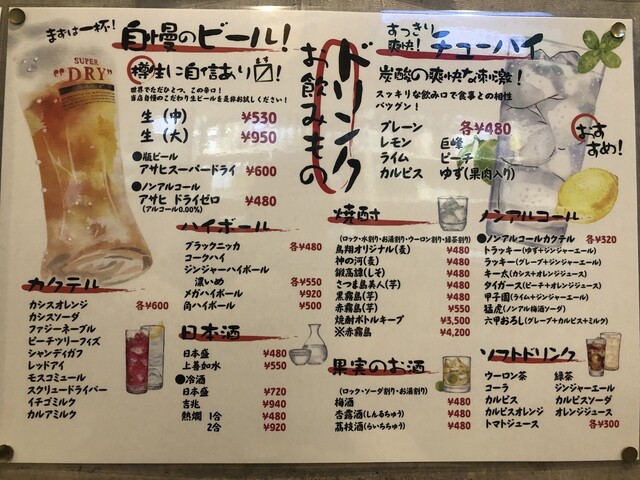 まずは一杯!
SUPER
"DRY"
自慢のビール!
樽生に自信あり
世界でただひとつ、この辛口!
当店自慢のこだわり生ビールを是非お試しください!
生(中) ¥530
生(大) ¥950
●瓶ビール
アサヒスーパードライ ¥600
●ノンアルコール
アサヒ ドライゼロ ¥480
(アルコール0.00%)
ドリンク
お飲みもの
すっきり爽快!
チューハイ
炭酸の爽快な刺激!
スッキリな飲み口で食事との相性
バツグン!
プレーン 各¥480
レモン 巨峰
ライム ピーチ
カルピス ゆず(果肉入り)
おすすめ!
カクテル
カシスオレンジ 各¥600
カシスソーダ
ファジーネーブル
ピーチツリーフィズ
シャンディガフ
レッドアイ
モスコミュール
スクリュードライバー
イチゴミルク
カルアミルク
ハイボール
ブラックニッカ 各¥480
コークハイ
ジンジャーハイボール
濃いめ 各¥550
メガハイボール ¥920
角ハイボール ¥500
日本酒
日本盛 ¥480
上善如水 ¥550
●冷酒
日本盛 ¥720
吉兆 ¥940
熱燗 1合 ¥480
2合 ¥920
焼酎
(ロック・水割り・お湯割り・ウーロン割り・緑茶割り)
鳥翔オリジナル(麦) ¥480
神の河(麦) ¥480
鍛高譚(しそ) ¥480
さつま島美人(芋) ¥480
黒霧島(芋) ¥480
赤霧島(芋) ¥550
焼酎ボトルキープ ¥3,500
※赤霧島 ¥4,200
果実のお酒
(ロック・ソーダ割り・お湯割り)
梅酒 ¥480
杏露酒(しんるちゅう) ¥480
茘枝酒(らいちちゅう) ¥480
ノンアルコール
●ノンアルコールカクテル 各¥320
トラッキー(ゆず+ジンジャーエール)
ラッキー(グレープ+ジンジャーエール)
キー太(カシス+オレンジジュース)
タイガース(ピーチ+オレンジジュース)
甲子園(ライム+ジンジャーエール)
猛虎(ノンアル梅酒ソーダ)
六甲おろし(グレープ+カルピス+ミルク)
ソフトドリンク
ウーロン茶 緑茶
コーラ ジンジャーエール
カルピス カルピスソーダ
カルピスオレンジ オレンジジュース
トマトジュース 各¥300